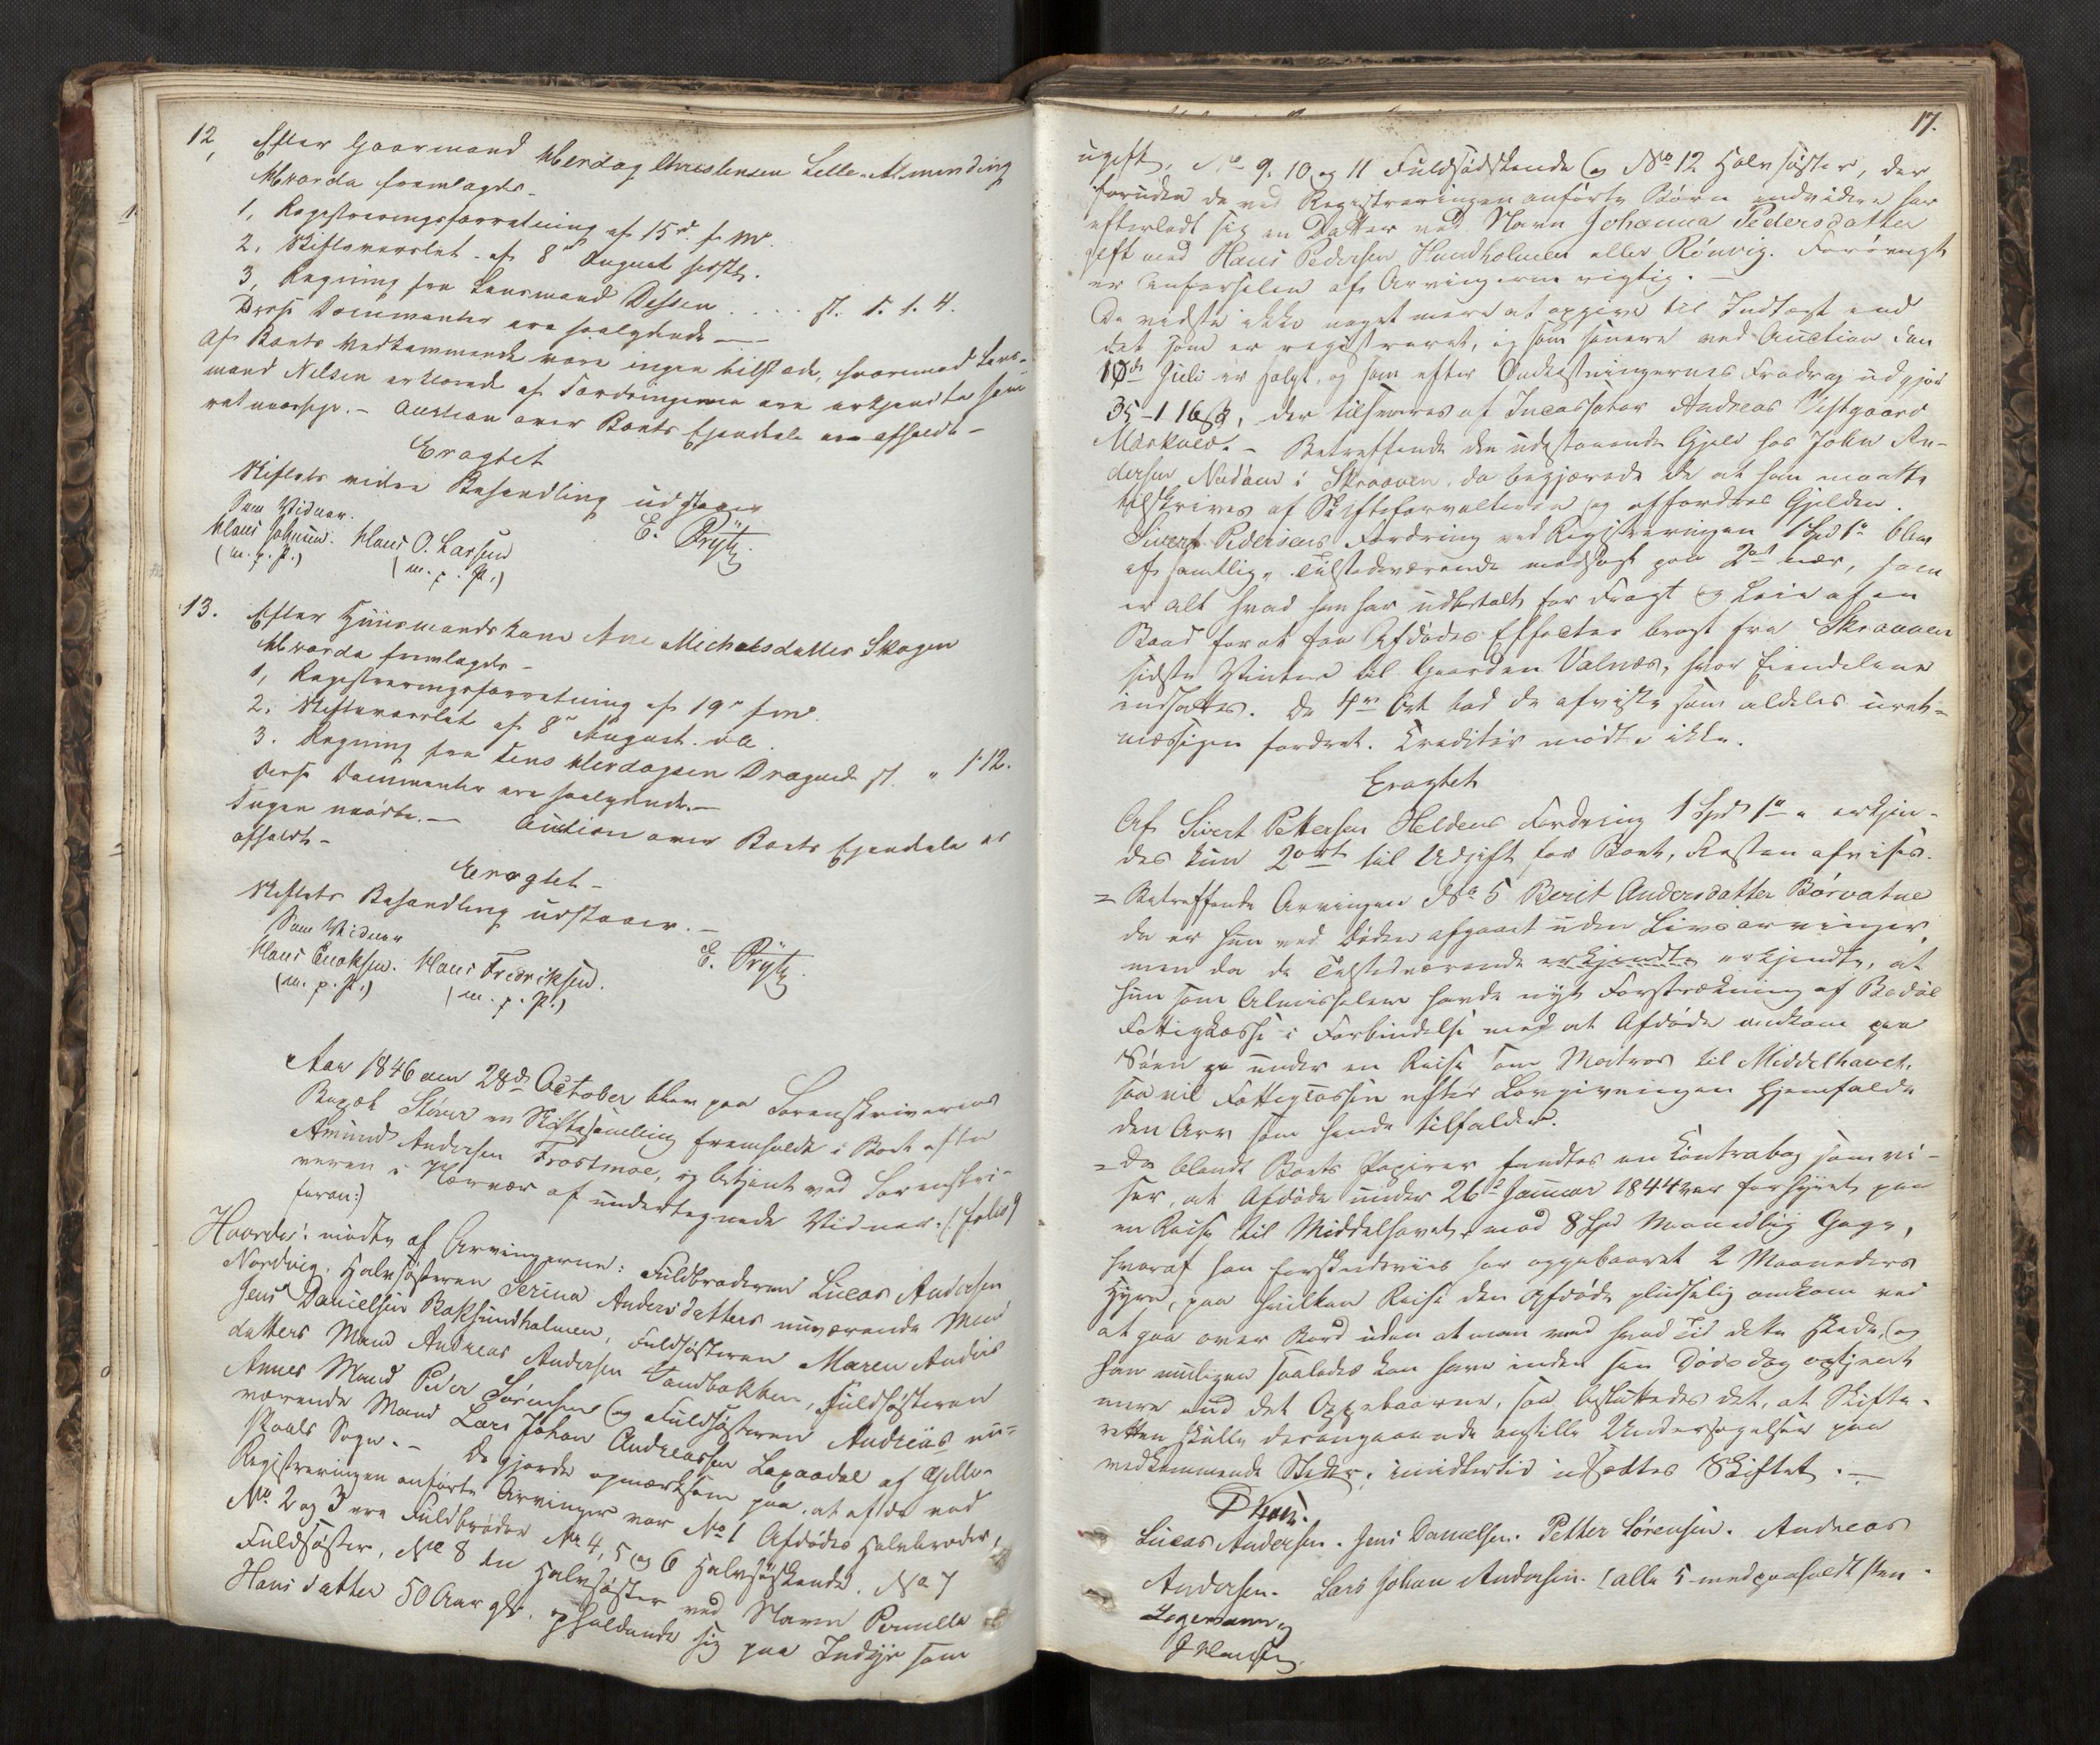 12, Efter Gaarmand Merdag Christensen Lille-Alminding
Hvorda fremlagdes
1, Registreringsforretning af 15de f. M.
2, Skiftevarslet af 8de August sidstl.
3, Regning fra Lensmand Dessen .... st. 5. 1. 4.
Disse Documenter ere saalydende —
Af Boets Vedkommende vare ingen tilstede, hvorimod Lens-
mand Nilsen erklærede at Fordringerne ere erkjendte som
retmæssige. – Auction over Boets Eiendele er afholdt –
Eragtet
Skiftets videre Behandling udstaaer
Som Vidner. E. Prÿtz.
Hans Johnsen. Hans O. Larsen
(m. p. P.) (m. p. P.)
13. Efter Huusmandskone Ane Michelsdatter Skogen
Hvorda fremlagdes –
1, Registreringsforretning af 19de f. M.
2, Skiftevarslet af 8de August d. A.
3. Regning fra Jens Merdagsen Dragnes st. " 1. 12.
Disse Documenter ere saalydende. –
Ingen mødte. – Auction over Boets Eiendele er
afholdt –
Eragtet –
Skiftets Behandling udstaaer. –
Som Vidner E. Prÿtz.
Hans Enoksen. Hans Fredriksen.
(m. p. P.) (m. p. P.)
Aar 1846 den 28de October blev paa Sorenskriverens
Bopæl Støver en Skiftesamling fremholdt i Boet efter
Amund Andersen Frostmoe, og betjent ved Sorenskri-
veren i Nærvær af undertegnede Vidner. (: Folio 9
foran :)
Hvorda: mødte af Arvingerne: Fuldbroderen Lucas Andersen
Nordvig, Halvsøsteren Serina Andersdatters nuværende Mand
Jens Danielsen Boksundholmen, Fuldsøsteren Maren Anders
datters Mand Andreas Andersen Sandbakken, Fuldsøsteren
Annes Mand Peder Sørensen og Fuldsøsteren Andreas nu-
værende Mand Lars Johan Andreassen Lexaadal af Gille-
skaals Sogn. – De gjorde opmærksom paa, at af de ved
Registreringen anførte Arvinger var No 1 Afdødes Halvbroder,
No 2 og 3 ere Fuldbrødre No 4, 5 og 6 Halvsødskende. No 7
Fuldsøster, No 8 en Halvsøster ved Navn Pernille
Hansdatter 50 Aar gl. opholdende sig paa Indyr som
17.
ugift, No 9. 10 og 11 Fuldsødskende og No 12 Halvsøster, der
foruden de ved Registreringen anførte Børn endvidere har
efterladt sig en Datter ved Navn Johanna Pedersdatter
gift med Hans Pedersen Hundholmen eller Rønvig. Forøvrigt
er Anførselen af Arvingerne rigtig. –
De vidste ikke noget mere at opgive til Indtægt end
det som er registreret, og som senere ved Auction den
10de Juli er solgt, og som efter Omkostningernes Fradrag udgjør
35 – 1 16 ß, der tilsvares af Incassator Andreas Vestgaard
Mørkved. – Betreffende den udestaaende Gjeld hos John An-
dersen Nordøen i Skraaven, da begjærede de at han maatte
tilskrives af Skifteforvalteren og affordres Gjelden.
Sivert Pedersens Fordring ved Registreringen 1 Spd 1" blev
af samtlige Tilstedeværende modsagt paa 2 ort nær, som
er alt hvad han har udbetalt for Fragt og Leie af en
Baad for at faa Afdødes Effecter bragt fra Skraaven
sidste Vinter til Gaarden Valnæs, hvor Eiendelene
indsattes. De 4re Ort bad de afviste som aldeles uret-
mæssigen fordret. Creditor mødte ikke.
Eragtet
Af Sivert Pettersen Heldens Fordring 1 Spd 1" " erkjen-
des kun 2 ort til Udgift for Boet, Resten afvises.
= Betreffende Arvingen No 5 Berit Andersdatter Børvatne
da er hun ved Døden afgaaet uden Livsarvinger,
men da de Tilstedeværende erkjendte erkjendte, at
hun som Almisselem havde nydt Forstrækning af Bodøe
Fattigkasse i Forbindelse med at Afdøde omkom paa
Søen paa under en Reise som Matros til Middelhavet,
saa vil Fattigkassen efter Lovgivningen hjemfalde
den Arv som hende tilfalder.
= Da blandt Boets Papirer fandtes en Contrabog som vi-
ser, at Afdøde under 26de Januar 1844 var forhyret paa
en Reise til Middelhavet, mod 8 Spd Maanedlig Gage,
hvoraf han forskudsviis har oppebaaret 2 Maaneders
Hyre, paa hvilken Reise den Afdøde pludselig omkom ved
at gaa over Bord uden at man ved hvad Tid dette skede, og
han muligen saaledes kan have inden sin Dødsdag optjent
mere end det Oppebaarne, saa besluttedes det, at Skifte-
retten skulle desangaaende anstille Undersøgelser paa
vedkommende Steder, imidlertid udsættes Skiftet. –
Lucas Andersen. Jens Danielsen. Petter Sørensen. Andreas
Andersen. Lars Johan Andersen. (alle 5 med paaholdt Pen.